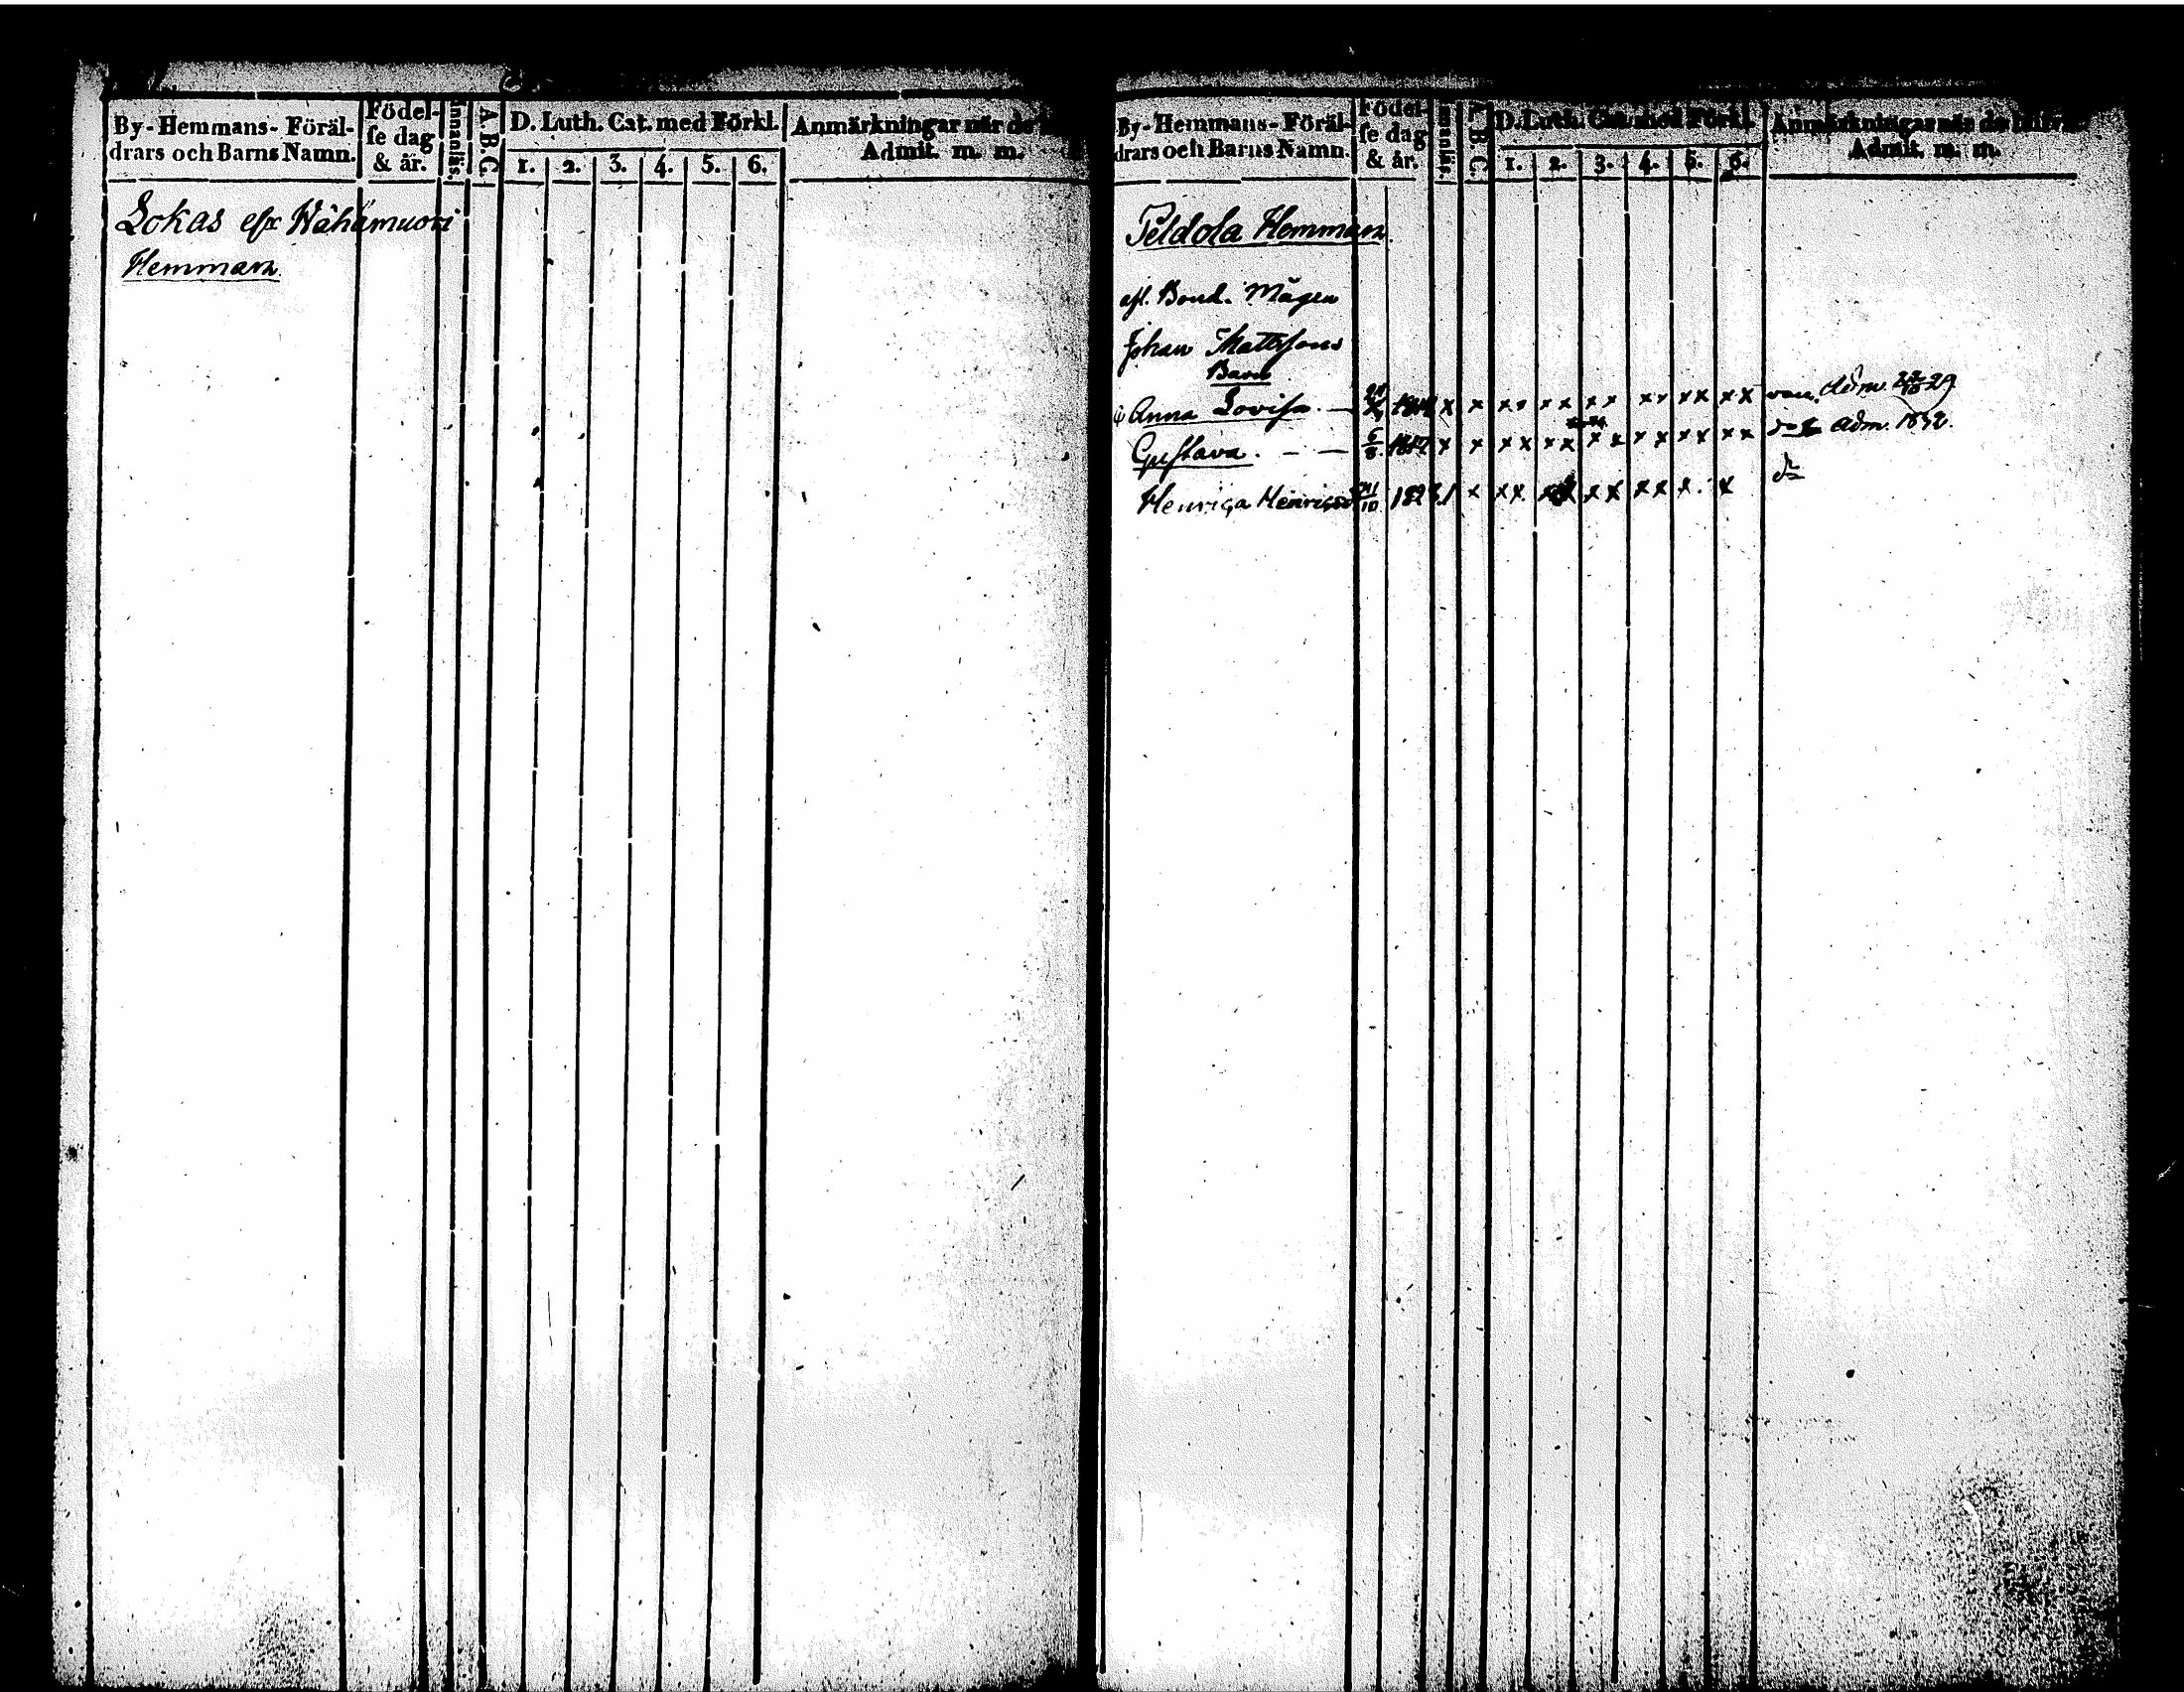 By-Hemmans-Föräl-
drars och Barns Namn.
Födel-
se dag
& år.
Innanläs.
A.B.C.
D. Luth. Cat. med Förkl.
1. 2. 3. 4. 5. 6.
Anmärkningar när de
Admit. m. m.
Lokas eller Wähämuori
Hemman
By-Hemmans-Föräl-
drars och Barns Namn.
Födel-
se dag
& år.
Innanläs.
A.B.C.
D. Luth. Cat. med Förkl.
1. 2. 3. 4. 5. 6.
Anmärkningar när de blifva
Admit. m. m.
Peldola Hemman
afl. Bond. Mågen
Johan Mattssons
Barn
Anna Lovisa. — x x x x x x x x x x x x x x adm. 29
Gustava. — — 6/8 1817 x x x x x x x x x x x x x x adm. 1832.
Henrica x x x x x x x x x x x